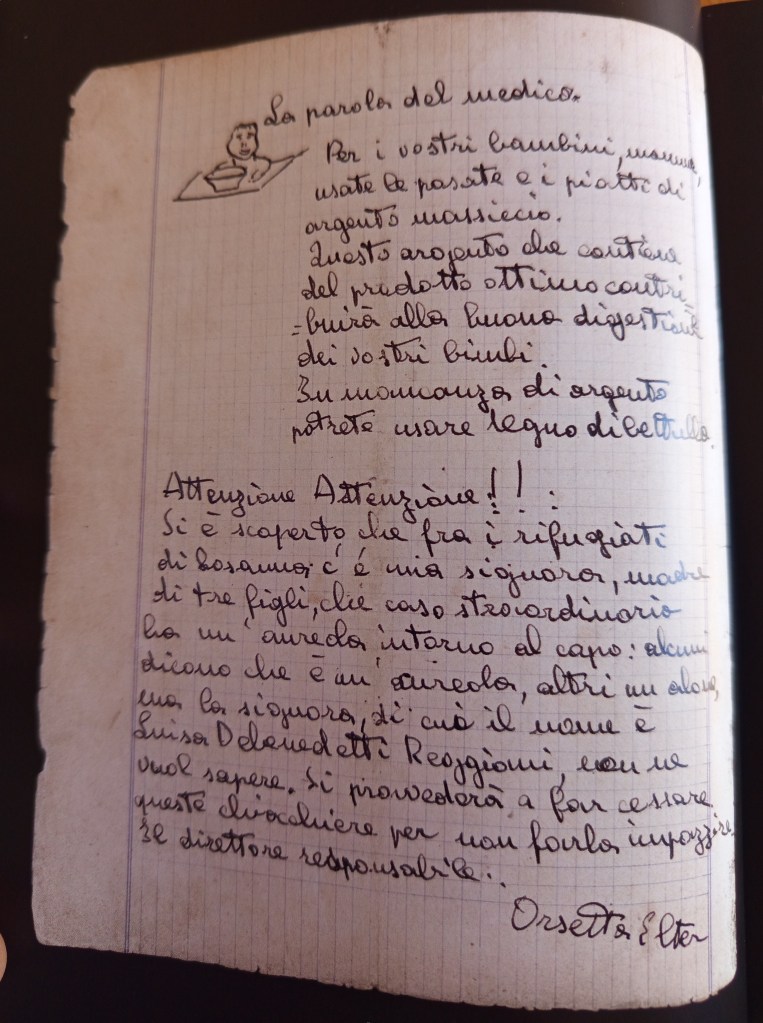 La parola del medico.
Per i vostri bambini, mamme,
usate le posate e i piatti di
argento massiccio.
Questo argento che contiene
del prodotto ottimo contri-
=buirà alla buona digestione
dei vostri bimbi.
In mancanza di argento
potrete usare legno di betulla.
Attenzione Attenzione!! :
Si è scoperto che fra i rifugiati
di Losanna c'è una signora, madre
di tre figli, che caso straordinario
ha un'aureola intorno al capo: alcuni
dicono che è un'aureola, altri un alone,
ma la signora, di cui il nome è
Luisa Debenedetti Reggiani, non ne
vuol sapere. Si provvederà a far cessare
queste chiacchiere per non farla impazzire.
Il direttore responsabile:.
Orsetta Elter